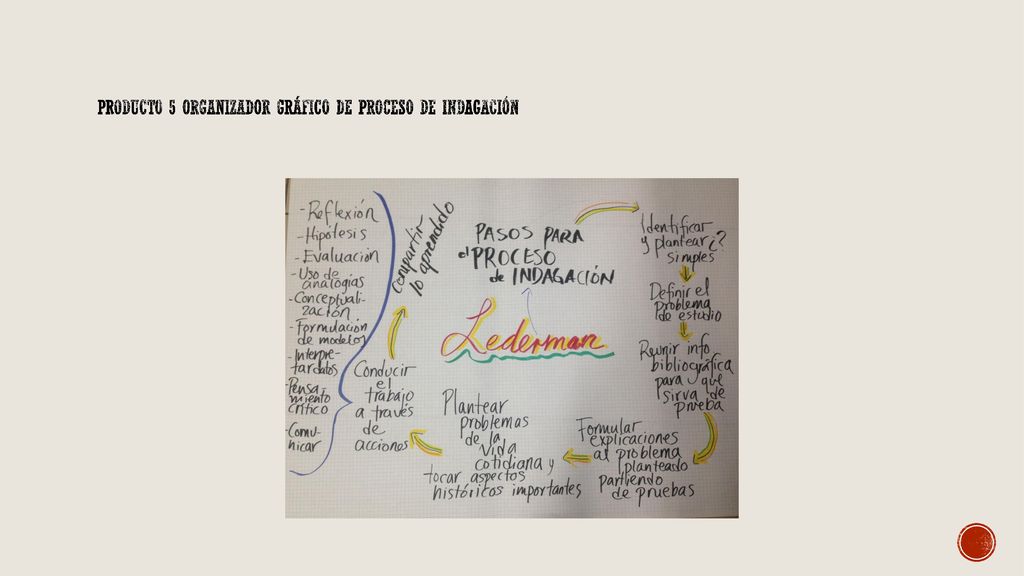 PRODUCTO 5 ORGANIZADOR GRÁFICO DE PROCESO DE INDAGACIÓN
PASOS PARA
el PROCESO
de INDAGACIÓN
Lederman
Identificar
y plantear ¿?
simples
Definir el
problema
de estudio
Reunir info
bibliográfica
para que
sirva de
prueba
Formular
explicaciones
al problema
planteado
partiendo
de pruebas
Plantear
problemas
de la
vida
cotidiana y
tocar aspectos
históricos importantes
Conducir
el
trabajo
a través
de
acciones
Compartir
lo aprendido
- Reflexión
- Hipótesis
- Evaluación
- Uso de
analogías
- Conceptuali-
zación
- Formulación
de modelos
- Interpre-
tar datos
- Pensa-
miento
crítico
- Comu-
nicar